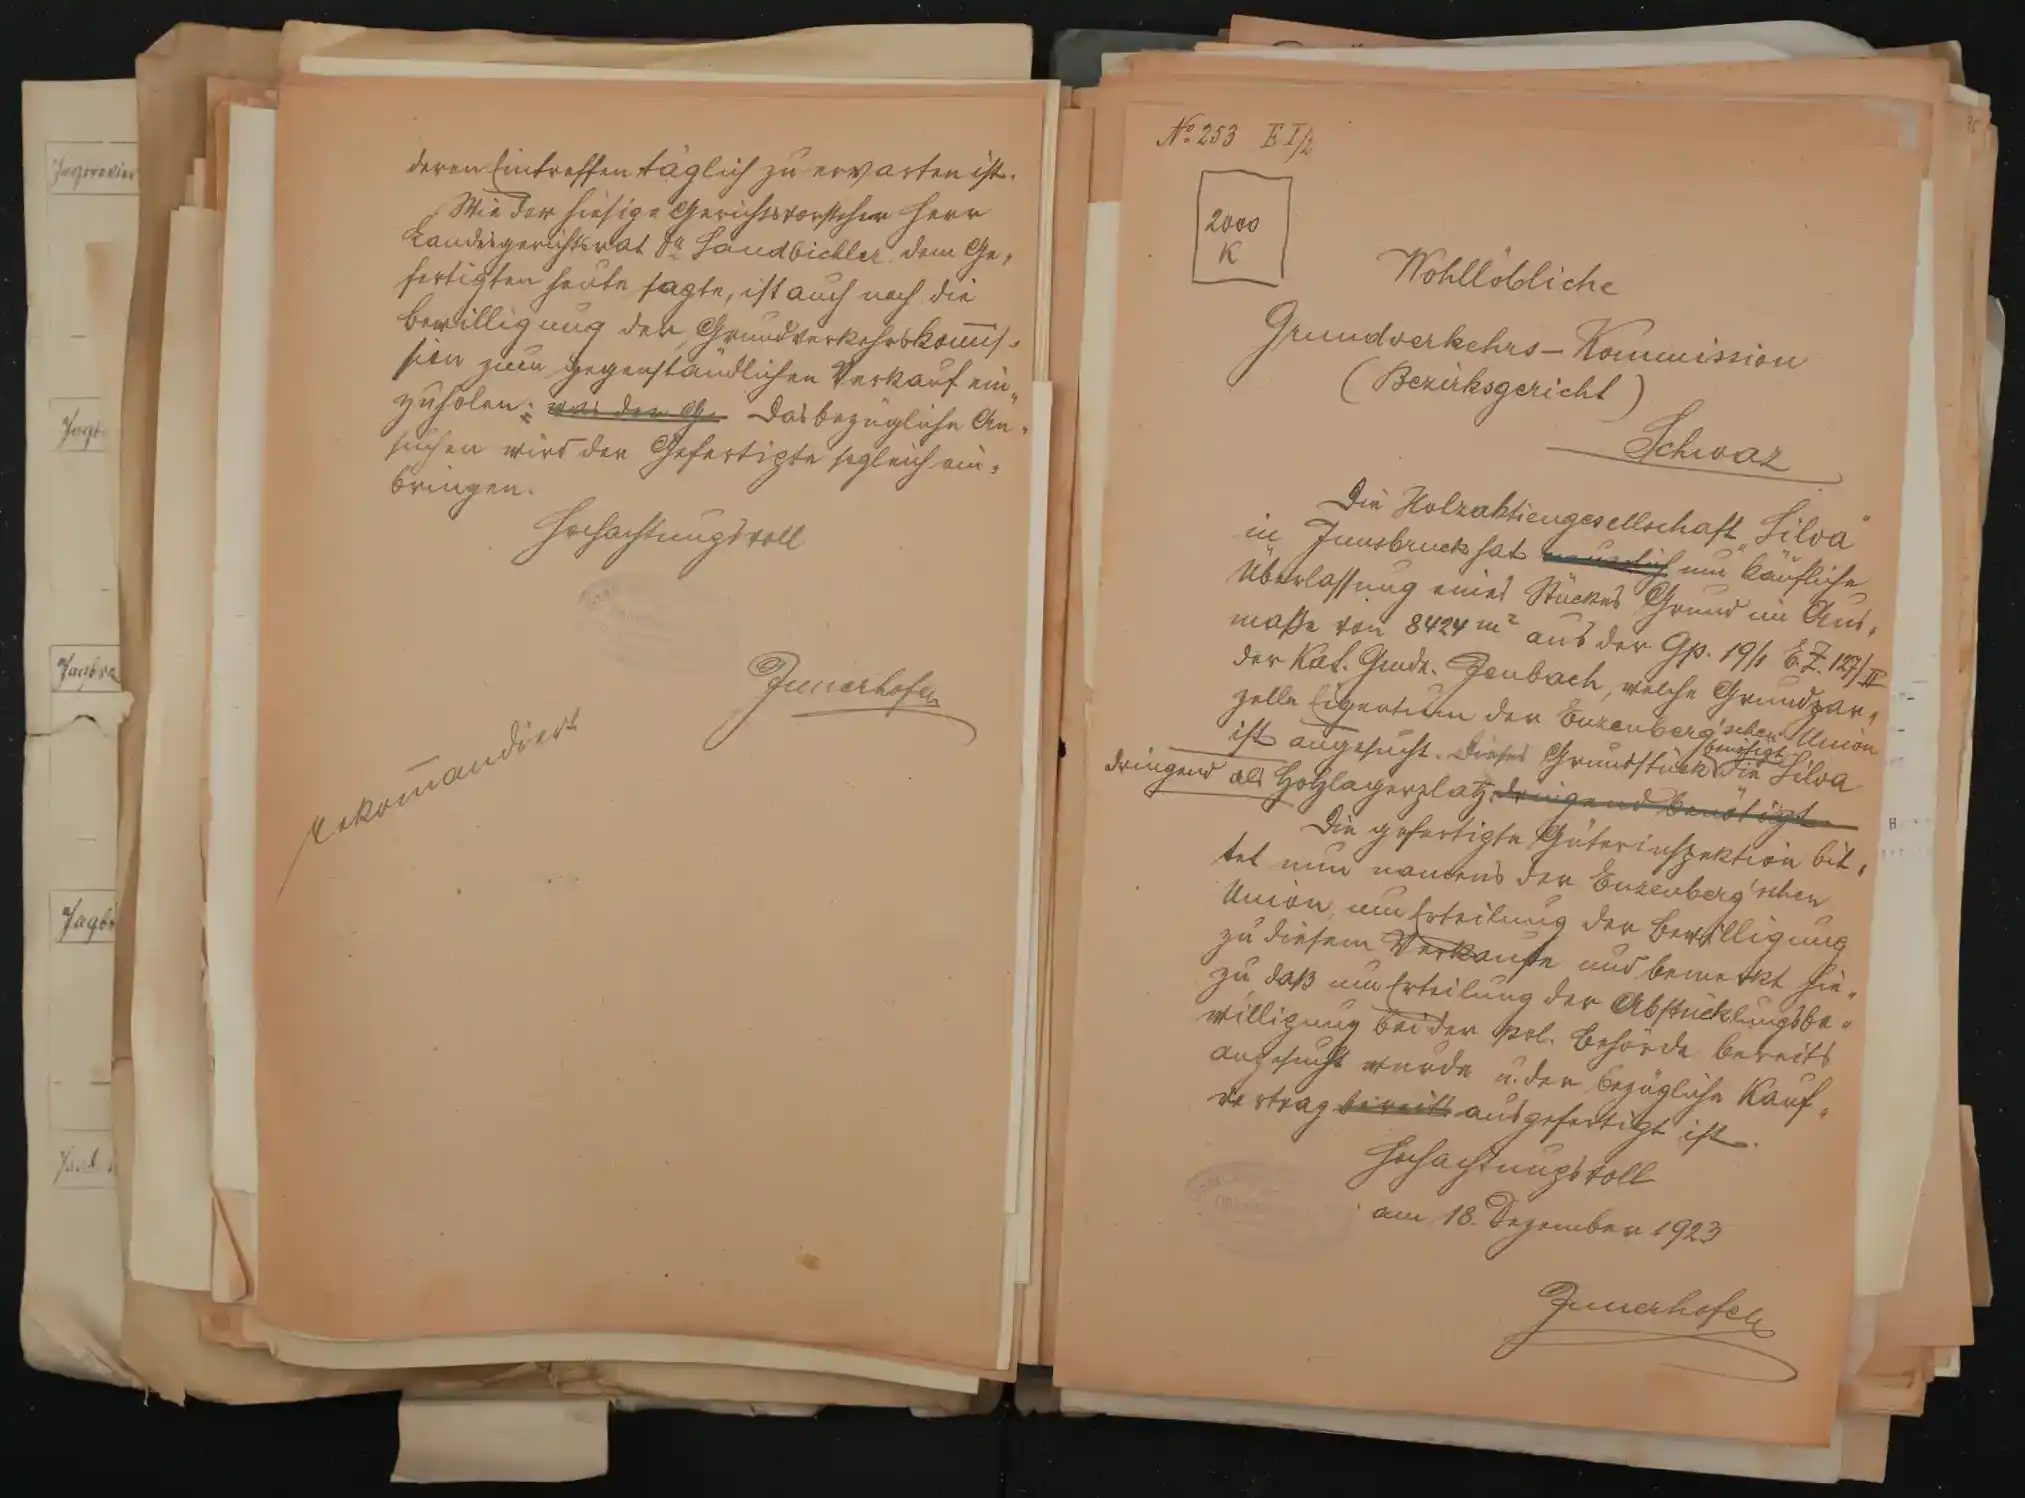 deren Eintreffen täglich zu erwarten ist.
Wie der hiesige Gerichtsvorsteher Herr
Landesgerichtsrat Dr. Sandbichler dem Ge=
fertigten heute sagte, ist auch noch die
Bewilligung der Grundverkehrskom̅is=
sion zum gegenständlichen Verkauf ein=
zuholen. was der G. Das bezügliche An=
suchen wird der Gefertigte sogleich ein=
bringen.
Hochachtungsvoll
Innerhofer
rekom̅andiert
No. 253 E I/2
2000
K
Wohllöbliche
Grundverkehrs-Kommission
(Bezirksgericht)
Schwaz
Die Holzaktiengesellschaft „Silva"
in Innsbruck hat neuerlich um käufliche
Überlassung eines Stückes Grund im Aus=
maße von 8424 m² aus der Gp. 19/1 E.Z. 127/II
der Kat. Gmde. Jenbach, welche Grundpar=
zelle Eigentum der Enzenberg'schen Union
ist angesucht. Dieses Grundstück benötigt die Silva
dringend als Holzlagerplatz. dringend benötigt.
Die gefertigte Güterinspektion bit=
tet nun namens der Enzenberg'schen
Union um Erteilung der Bewilligung
zu diesem Verkaufe und bemerkt hie=
zu daß um Erteilung der Abstücklungsbe=
willigung bei der pol. Behörde bereits
angesucht wurde u. der bezügliche Kauf=
vertrag bereits ausgefertigt ist.
Hochachtungsvoll
am 18. Dezember 1923
Innerhofer